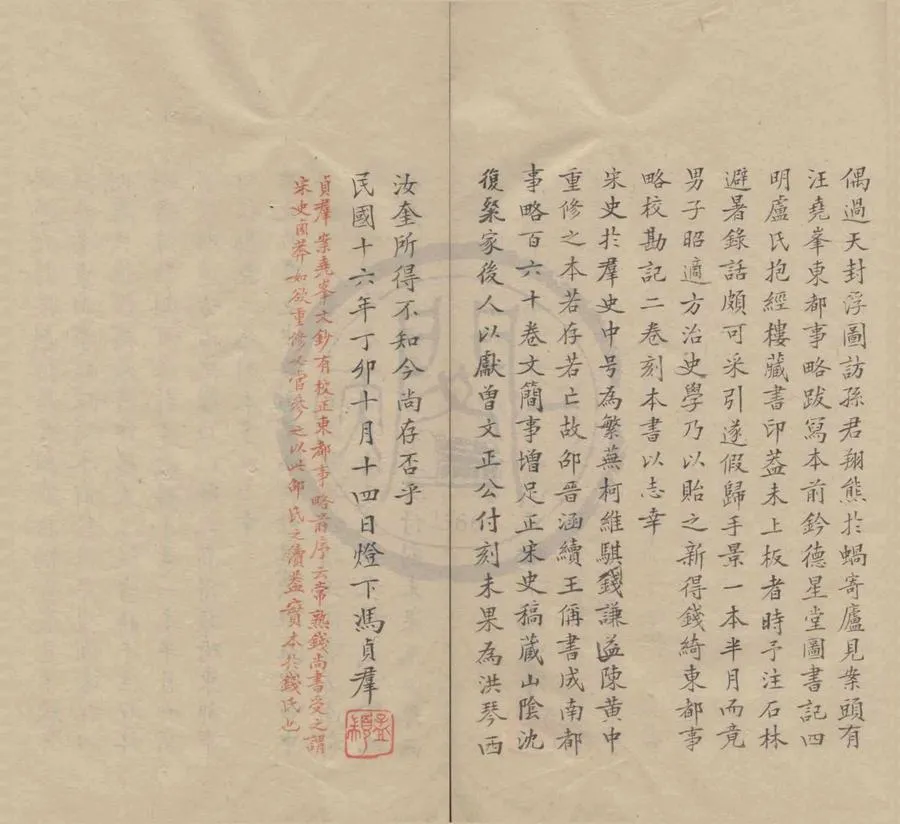 偶過天封浮圖訪孫君翔熊於蝸寄廬見案頭有
汪堯峯東都事略跋寫本前鈐德星堂圖書記四
明盧氏抱經樓藏書印蓋未上板者時予注石林
避暑錄話頗可采引遂假歸手景一本半月而竟
男子昭適方治史學乃以貽之新得錢綺東都事
略校勘記二卷刻本書以志幸
宋史於羣史中号為繁蕪柯維騏錢謙益陳黃中
重修之本若存若亡故邵晉涵續王偁書成南都
事略百六十卷文簡事增足正宋史稿藏山陰沈
復粲家後人以獻曾文正公付刻未果為洪琴西
汝奎所得不知今尚存否乎
民國十六年丁卯十月十四日燈下馮貞羣
貞羣案堯峯文鈔有校正東都事略前序云常熟錢尚書受之謂
宋史國莽如欲重修必當參之以此邵氏之續蓋實本於錢氏也